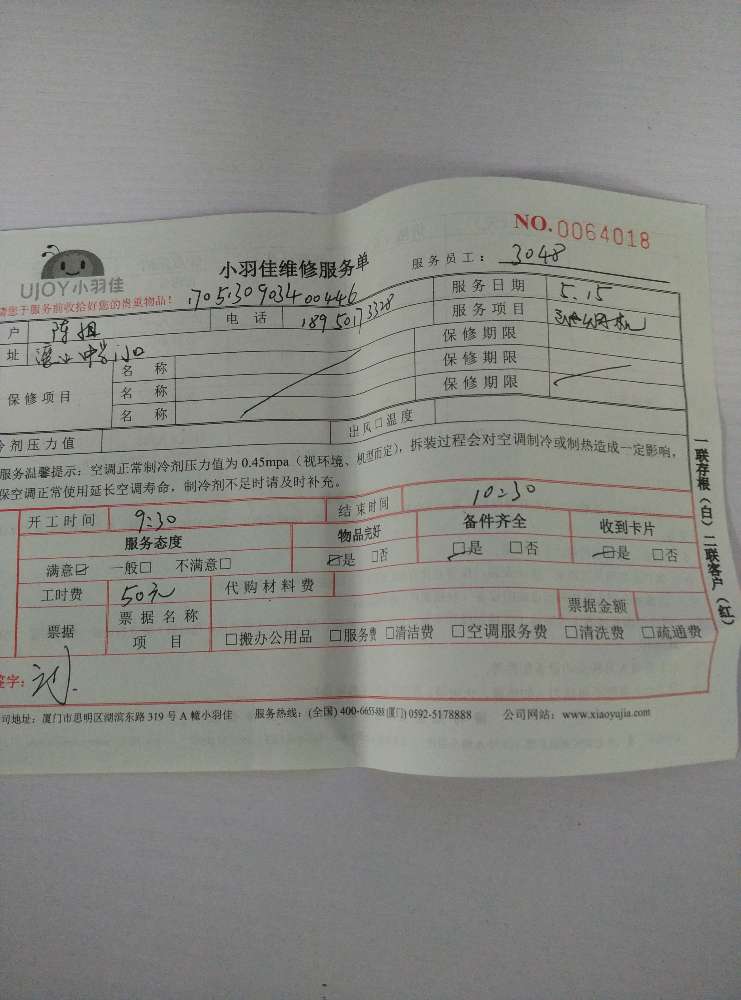 NO.0064018
UJOY小羽佳
小羽佳维修服务单
服务员工：3048
请您于服务前收拾好您的贵重物品！
170530903400446
户 陈姐 电话 18950173328 服务日期 5.15
址 中学门口 服务项目
保修期限
保修项目 名称 保修期限
名称 保修期限
名称
冷剂压力值 出风口温度
服务温馨提示：空调正常制冷剂压力值为 0.45mpa（视环境、机型而定），拆装过程会对空调制冷或制热造成一定影响，
保空调正常使用延长空调寿命，制冷剂不足时请及时补充。
开工时间 9:30 结束时间 10:30
服务态度 物品完好 备件齐全 收到卡片
满意☑ 一般□ 不满意□ ☑是 □否 ☑是 □否 ☑是 □否
工时费 50元 代购材料费
票据 票据名称 票据金额
项目 □搬办公用品 □服务费 □清洁费 □空调服务费 □清洗费 □疏通费
签字：
司地址：厦门市思明区湖滨东路 319 号 A 幢小羽佳 服务热线：(全国) 400-6655-888 (厦门) 0592-5178888 公司网站：www.xiaoyujia.com
一联存根（白）二联客户（红）